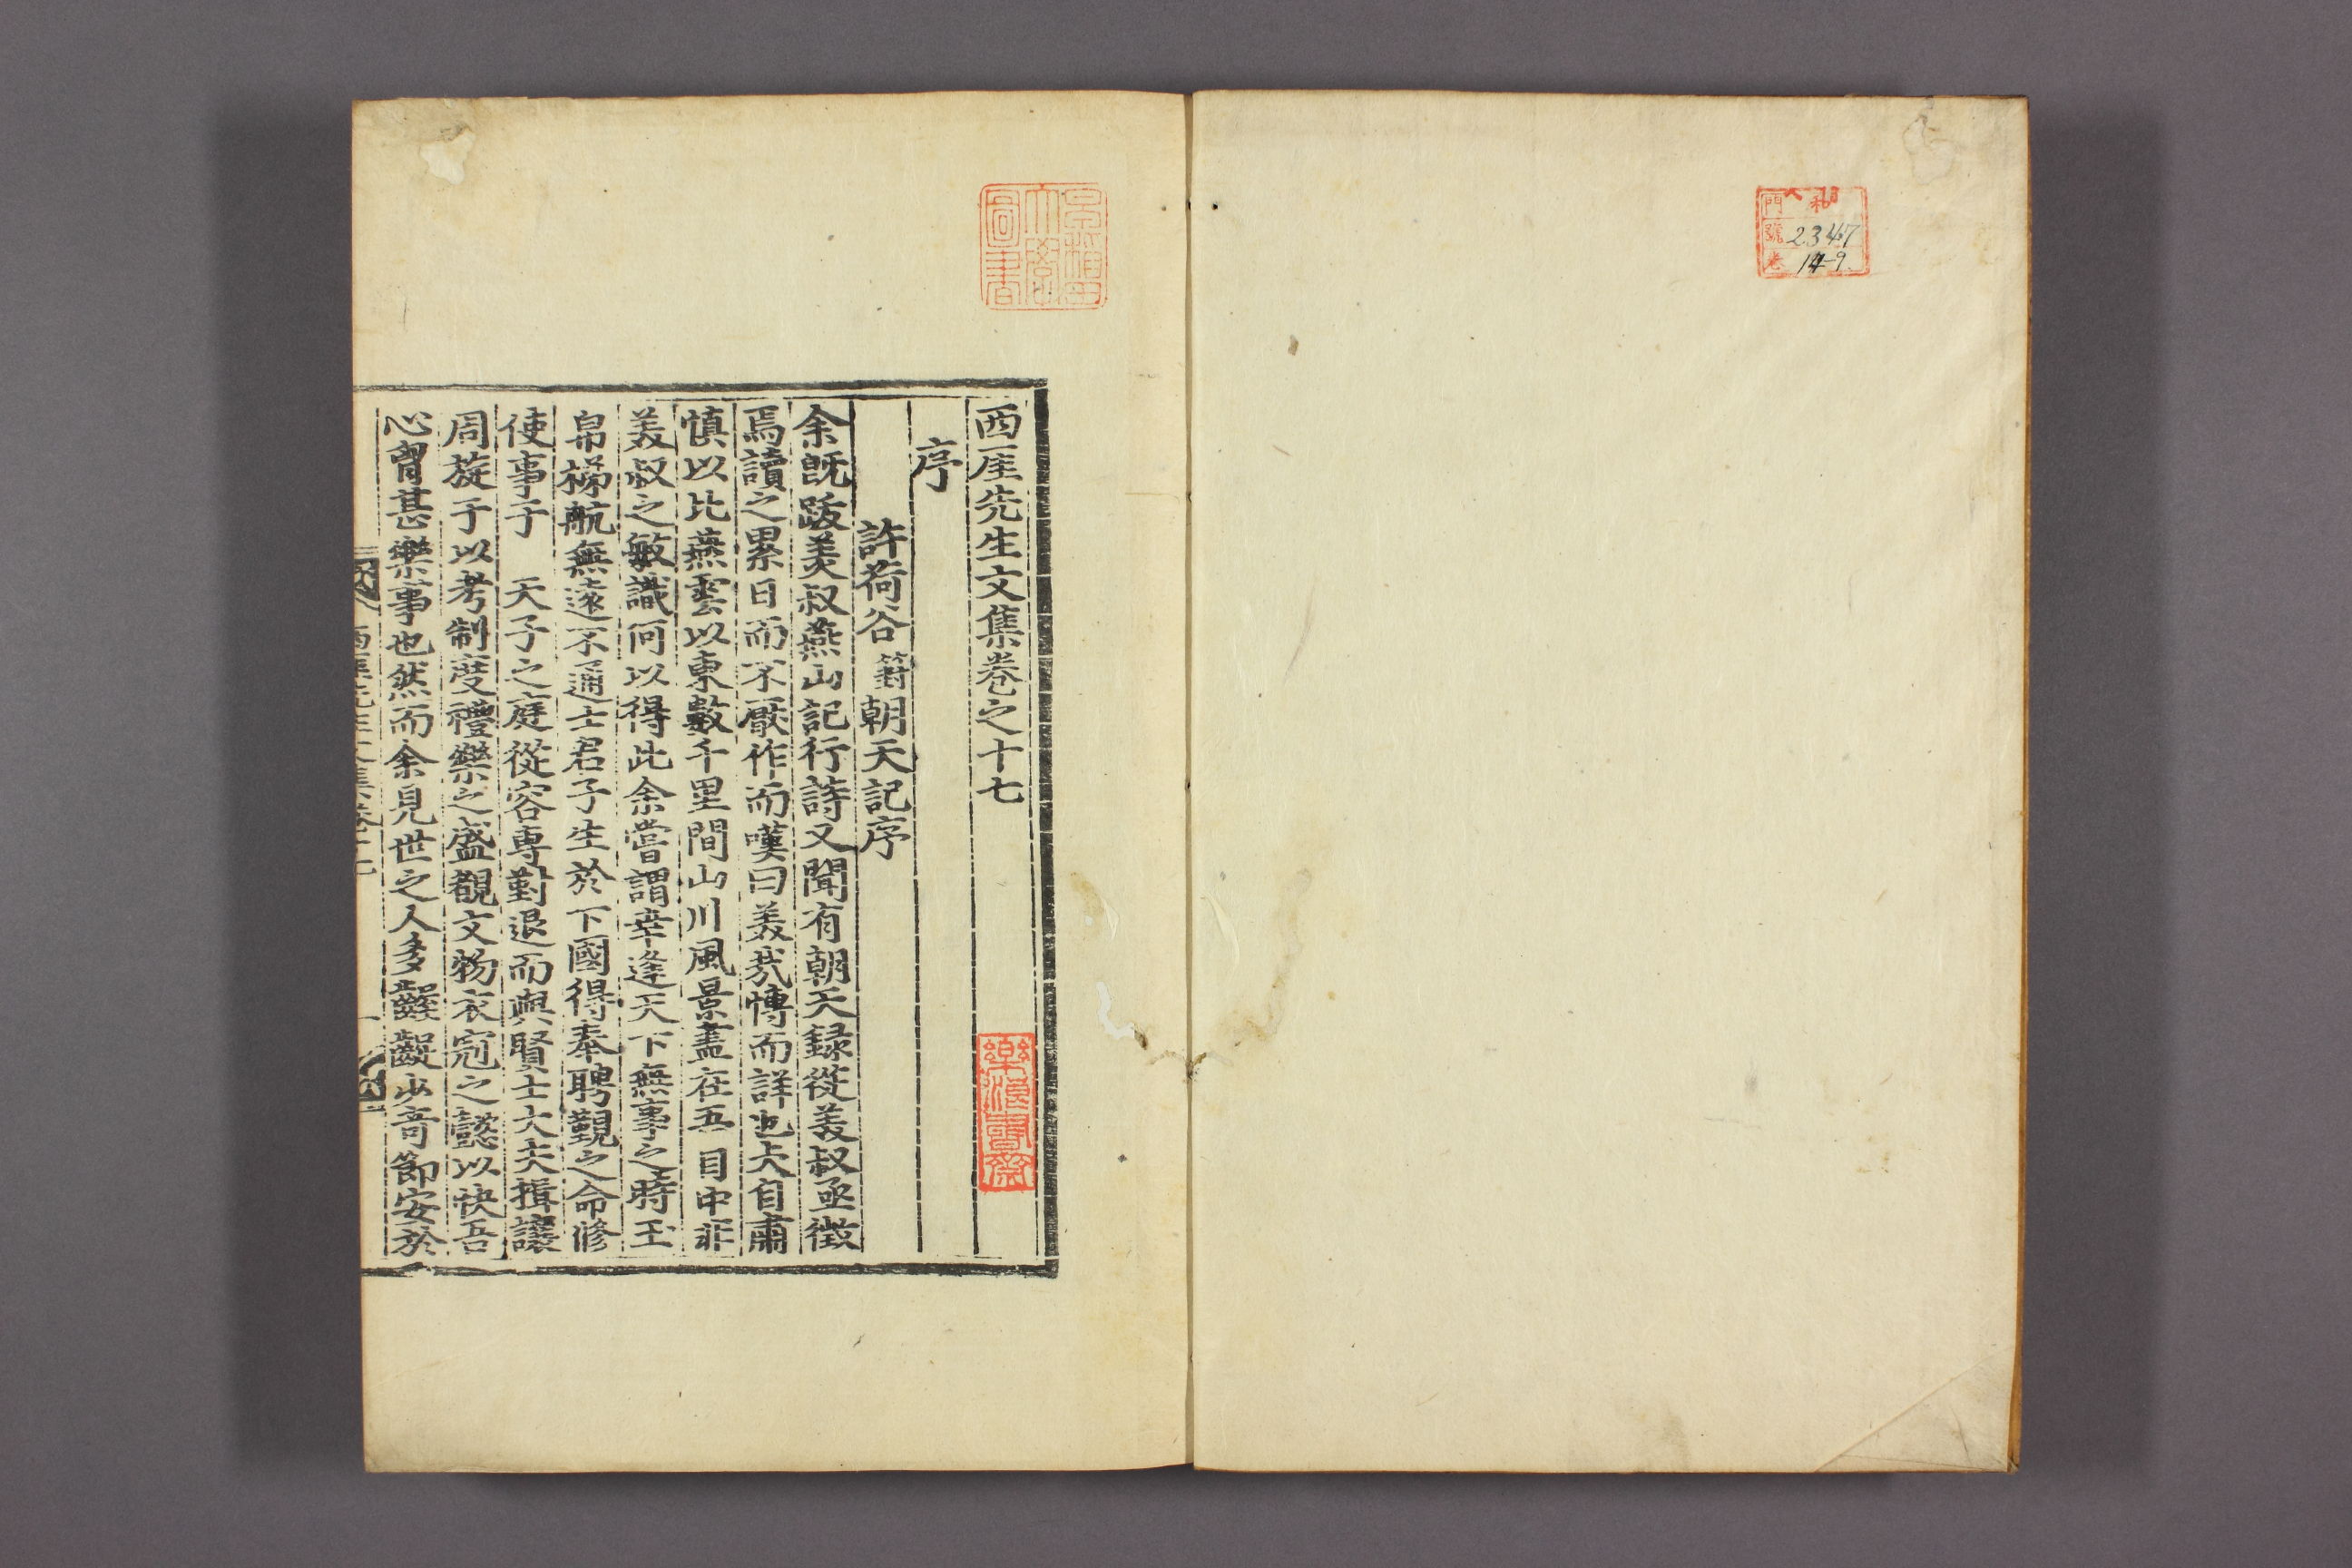 門
號
卷
2347
14-9
早稲田
大學
圖書
西厓先生文集卷之十七
樂浪書齋
序
許荷谷篈朝天記序
余旣跋美叔燕山記行詩又聞有朝天録從美叔亟徵
焉讀之累日而不厭作而嘆曰美哉慱而詳也夫自肅
慎以比燕雲以東數千里間山川風景盡在吾目中非
美叔之敏識何以得此余嘗謂幸逢天下無事之時玉
帛梯航無遠不通士君子生於下國得奉聘覲之命修
使事于 天子之庭從容專對退而與賢士大夫揖讓
周旋于以考制度禮樂之盛覩文物衣冠之懿以快吾
心胷甚樂事也然而余見世之人多齷齪少奇節安於